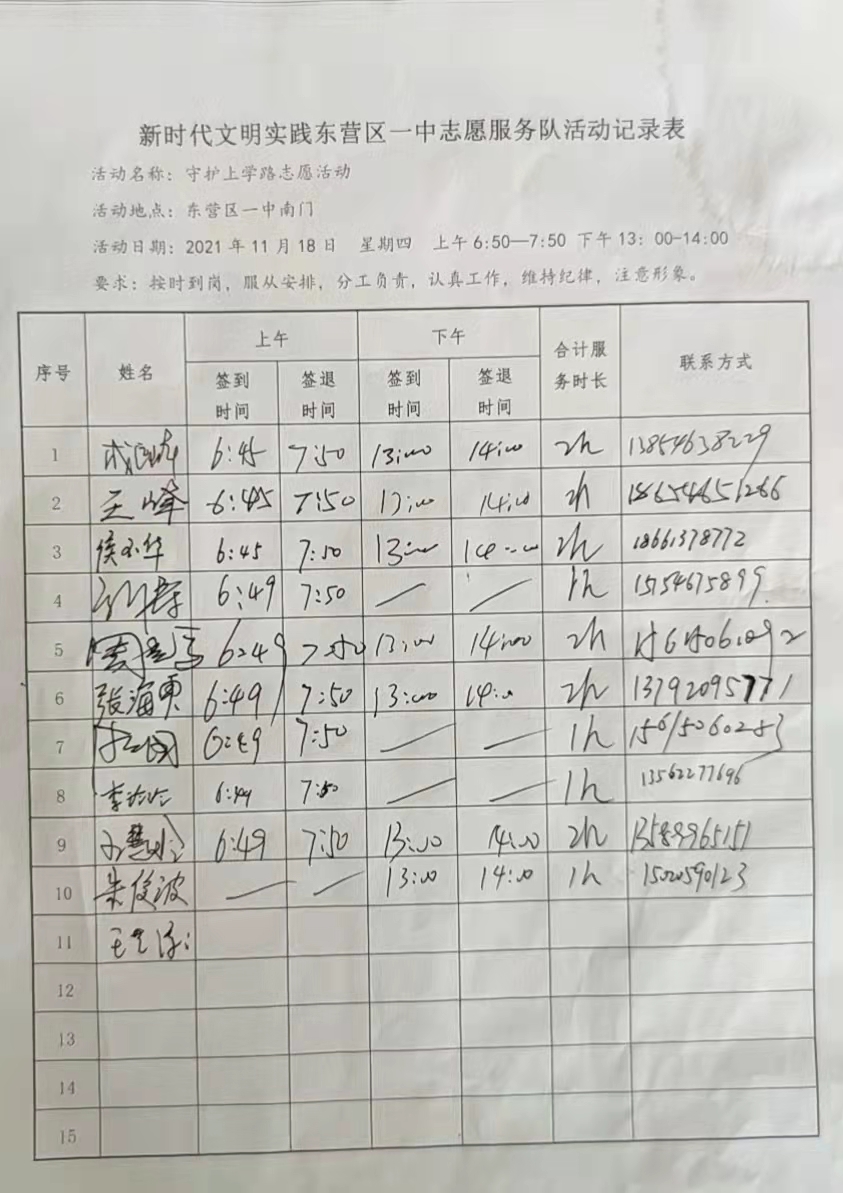 新时代文明实践东营区一中志愿服务队活动记录表
活动名称：守护上学路志愿活动
活动地点：东营区一中南门
活动日期：2021年11月18日 星期四 上午6:50—7:50 下午13：00-14:00
要求：按时到岗，服从安排，分工负责，认真工作，维持纪律，注意形象。
序号 姓名 上午 下午 合计服务时长 联系方式
签到时间 签退时间 签到时间 签退时间
1 6:45 7:50 13:00 14:00 2h 13854638229
2 王峰 6:45 7:50 13:00 14:00 2h 18654651266
3 侯不华 6:45 7:50 13:00 14:00 2h 18661378772
4 6:49 7:50 — — 1h 15754675899
5 6:49 7:50 13:00 14:00 2h
6 张海东 6:49 7:50 13:00 14:00 2h 13792095771
7 6:49 7:50 — — 1h 15615060283
8 李玲玲 6:49 7:50 — — 1h 13562277696
9 6:49 7:50 13:00 14:00 2h 13589965151
10 朱俊波 — — 13:00 14:00 1h 1502590123
11
12
13
14
15